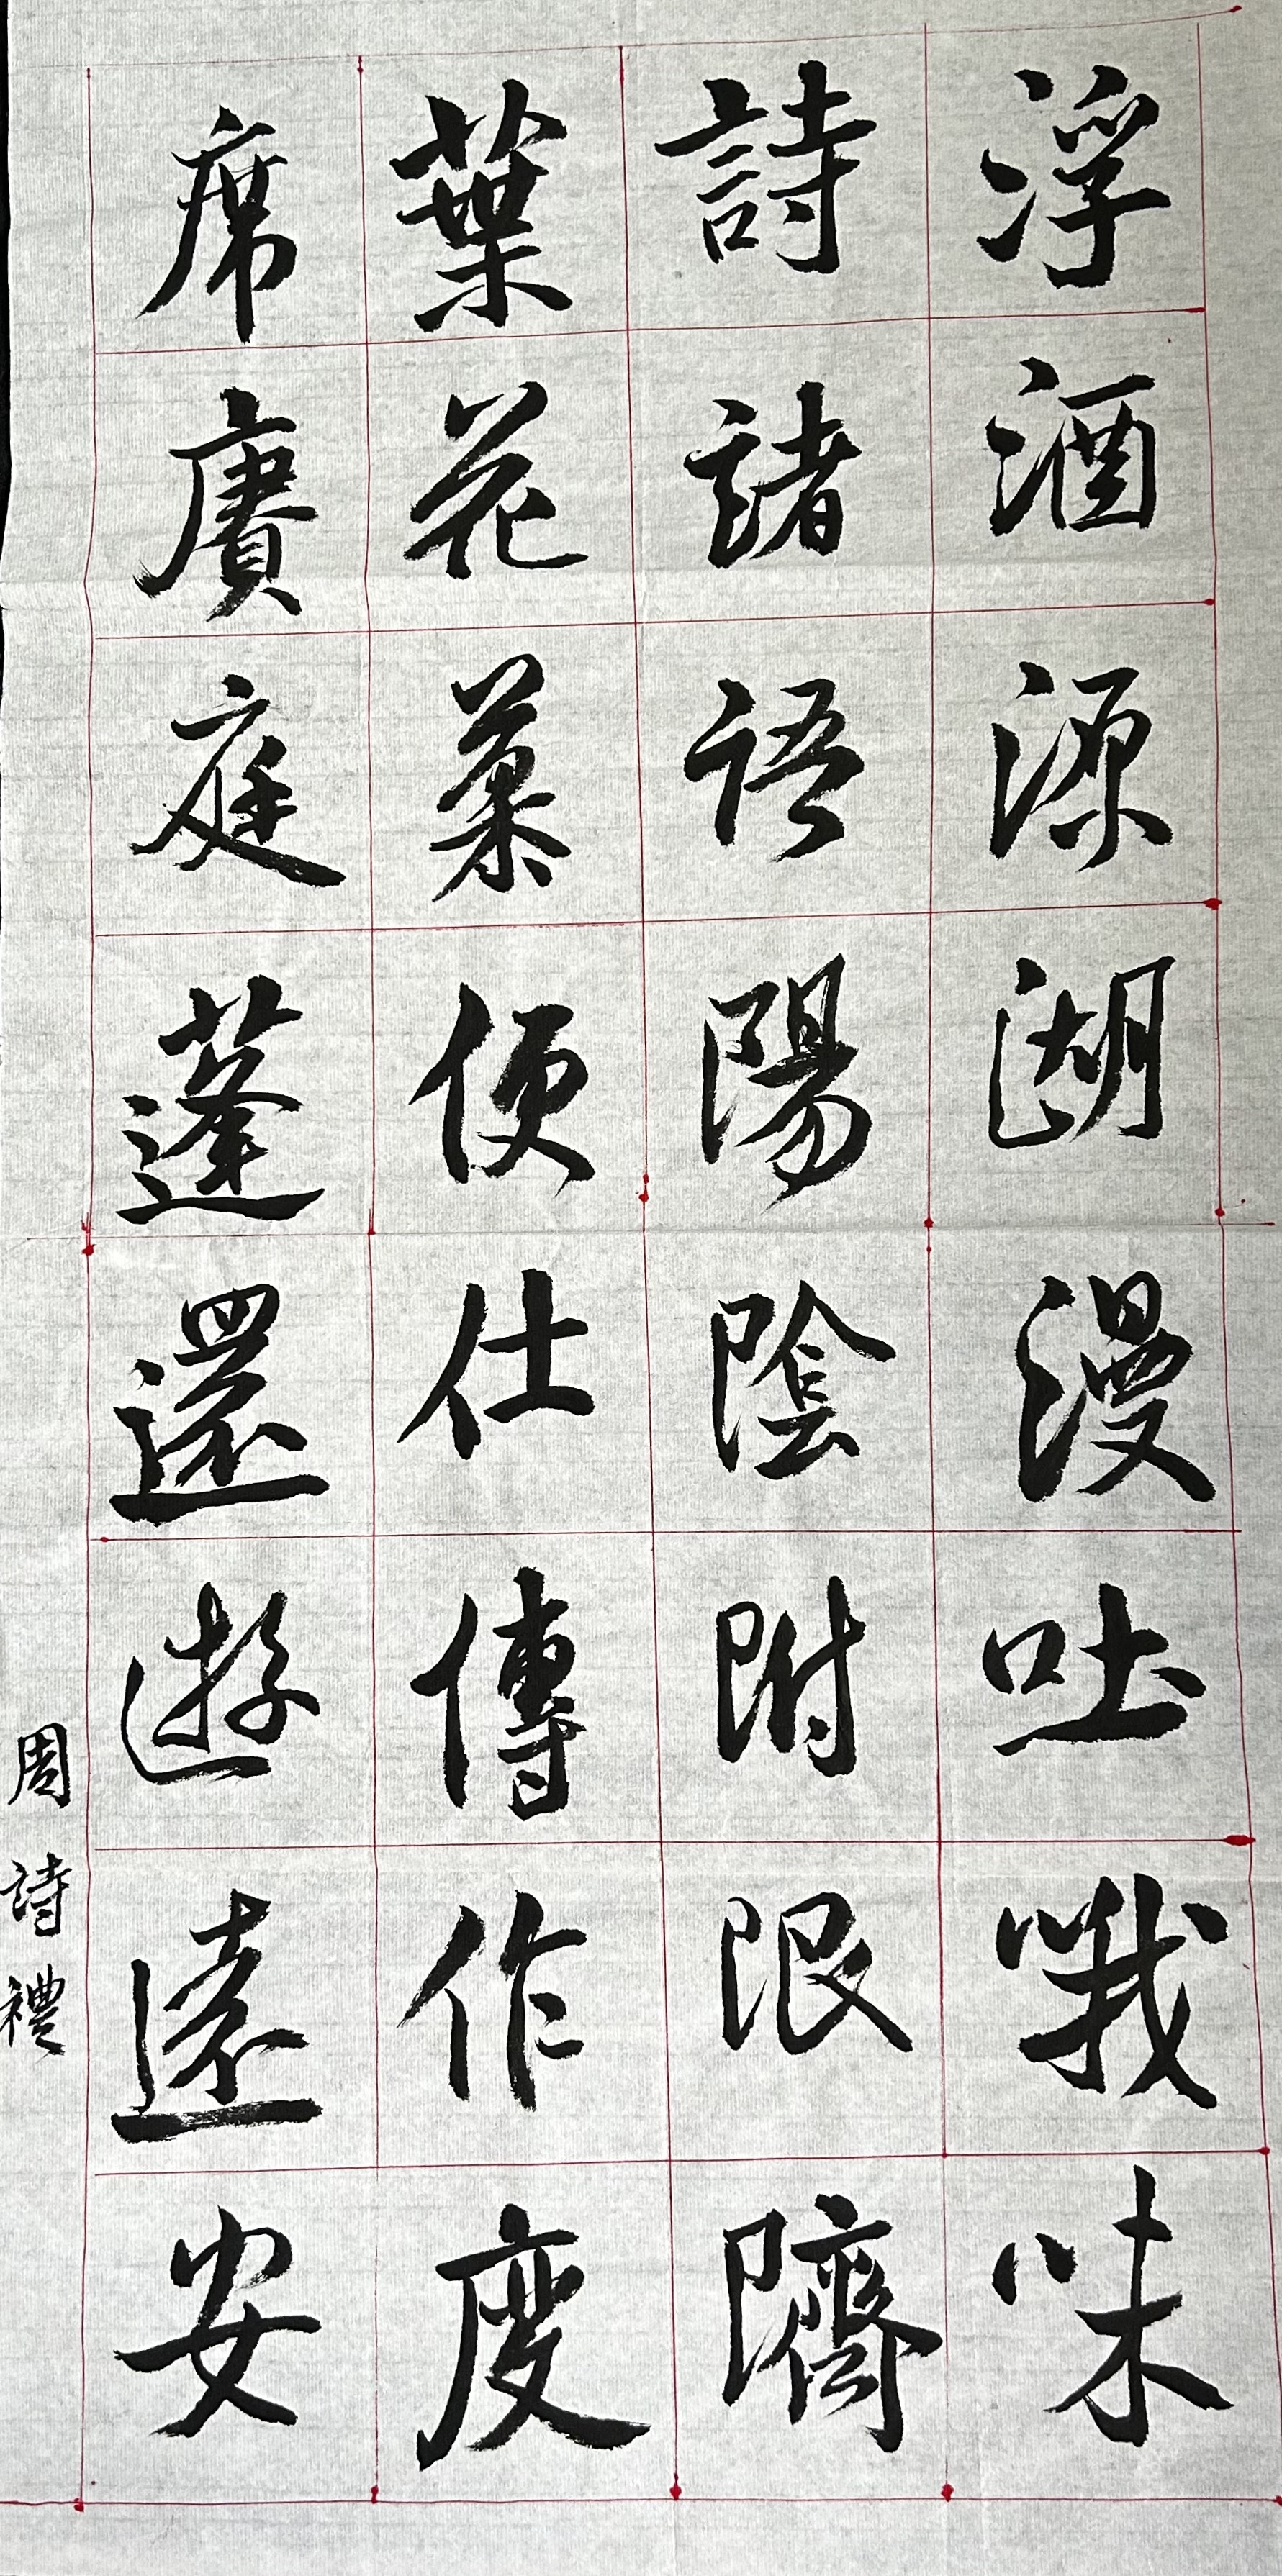 浮酒源湖漫吐哦味
詩諸語陽陰附限隮
葉花慕便仕傳作度
席賡庭蓬還遊遠安
周詩禮